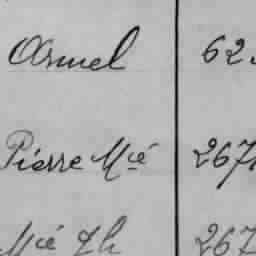 Armel 62
Pierre Mié 267
Mié Jh 267